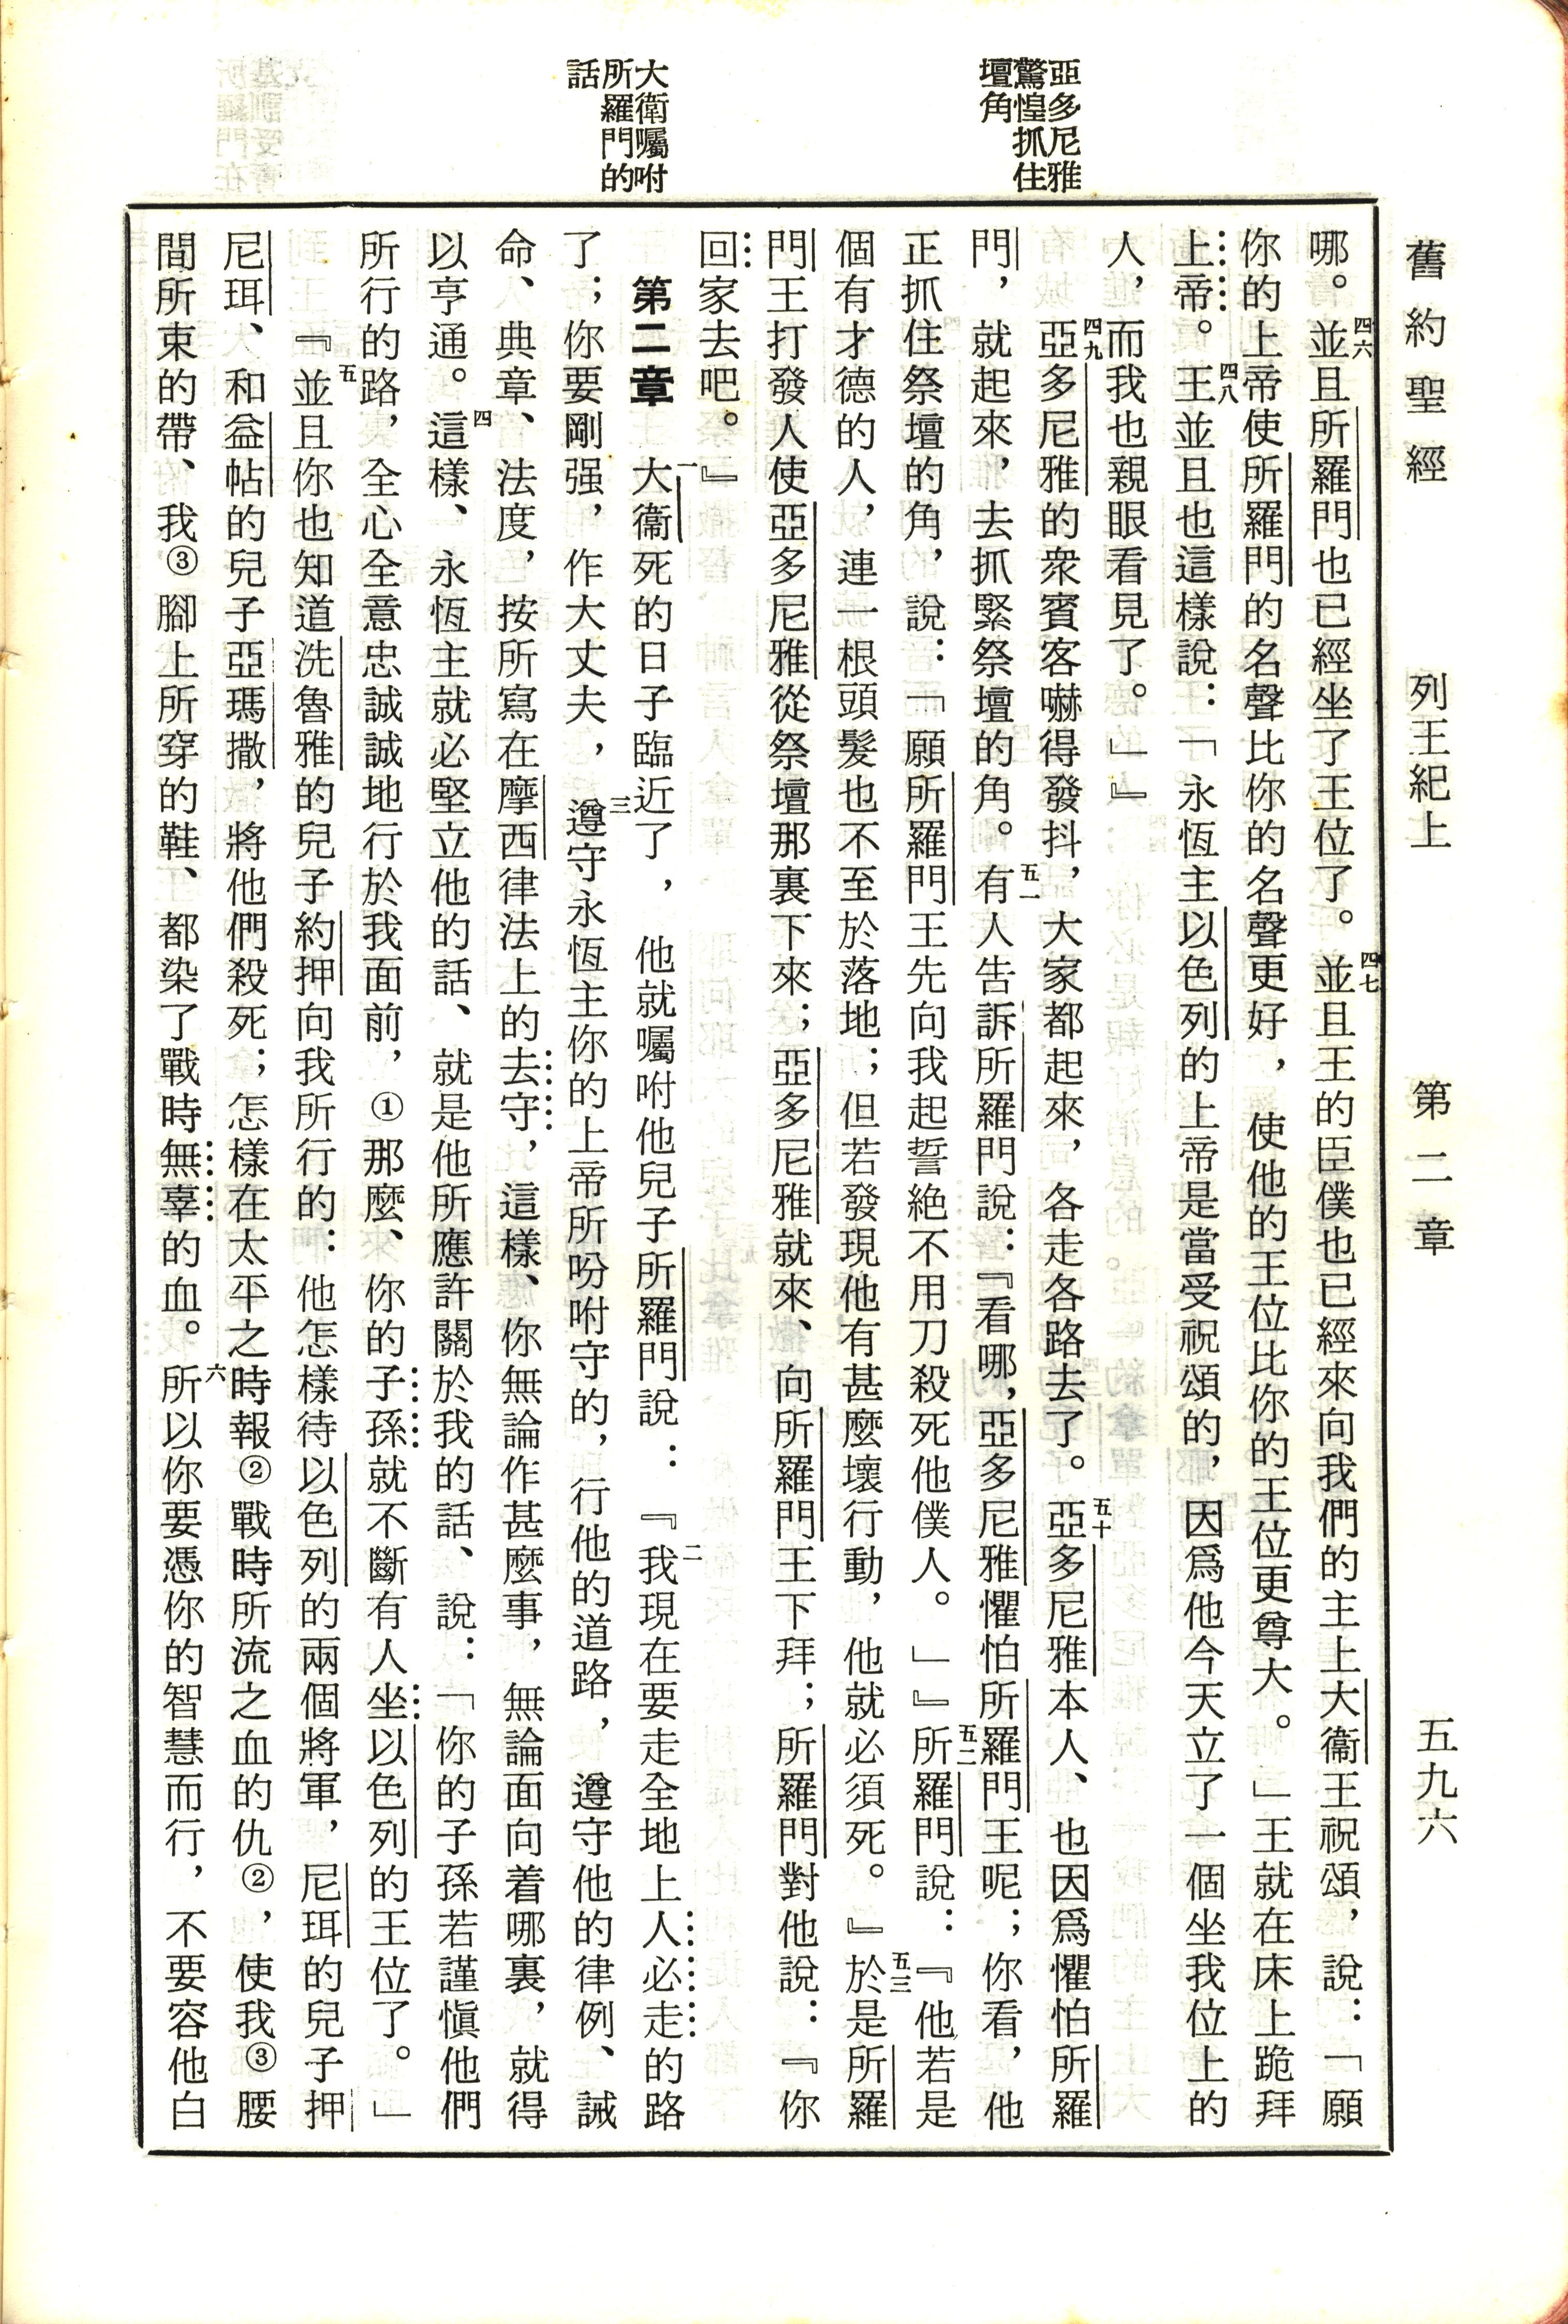 舊約聖經　列王紀上　第二章　五九六
亞多尼雅
驚惶抓住
壇角
大衛囑咐
所羅門的
話
哪。四六並且所羅門也已經坐了王位了。四七並且王的臣僕也已經來向我們的主上大衞王祝頌，說：「願
你的上帝使所羅門的名聲比你的名聲更好，使他的王位比你的王位更尊大。」王就在床上跪拜
上帝。四八王並且也這樣說：「永恆主以色列的上帝是當受祝頌的，因爲他今天立了一個坐我位上的
人，而我也親眼看見了。」』
四九亞多尼雅的衆賓客嚇得發抖，大家都起來，各走各路去了。五十亞多尼雅本人、也因爲懼怕所羅
門，就起來，去抓緊祭壇的角。五一有人告訴所羅門說：『看哪，亞多尼雅懼怕所羅門王呢；你看，他
正抓住祭壇的角，說：「願所羅門王先向我起誓絕不用刀殺死他僕人。」』五二所羅門說：『他若是
個有才德的人，連一根頭髮也不至於落地；但若發現他有甚麼壞行動，他就必須死。』五三於是所羅
門王打發人使亞多尼雅從祭壇那裏下來；亞多尼雅就來、向所羅門王下拜；所羅門對他說：『你
回家去吧。』
第二章　一大衞死的日子臨近了，他就囑咐他兒子所羅門說：『二我現在要走全地上人必走的路
了；你要剛强，作大丈夫，三遵守永恆主你的上帝所吩咐守的，行他的道路，遵守他的律例、誡
命、典章、法度，按所寫在摩西律法上的去守，這樣、你無論作甚麼事，無論面向着哪裏，就得
以亨通。四這樣、永恆主就必堅立他的話、就是他所應許關於我的話、說：「你的子孫若謹愼他們
所行的路，全心全意忠誠誠地行於我面前，①那麼、你的子孫就不斷有人坐以色列的王位了。」
『五並且你也知道洗魯雅的兒子約押向我所行的：他怎樣待以色列的兩個將軍，尼珥的兒子押
尼珥、和益帖的兒子亞瑪撒，將他們殺死；怎樣在太平之時報②戰時所流之血的仇②，使我③腰
間所束的帶、我③腳上所穿的鞋、都染了戰時無辜的血。六所以你要憑你的智慧而行，不要容他白